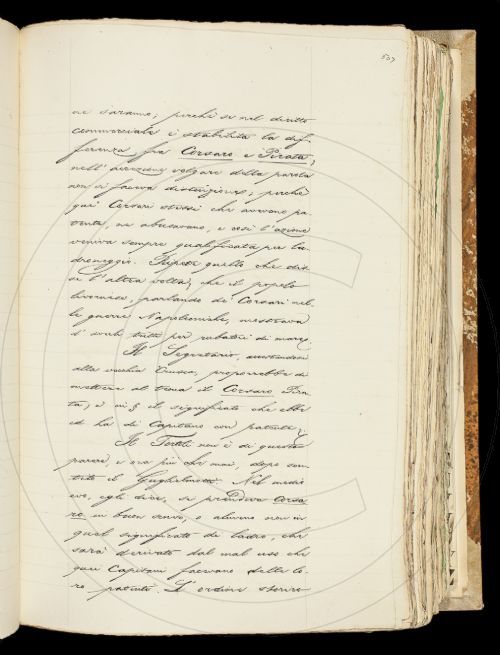 537
ne saranno; perchè se nel diritto
commerciale è stabilita la dif-
ferenza fra Corsaro e Pirata,
nell'accezione volgare della parola
non si faceva distinzione; perchè
quei Corsari stessi che avevano pa-
tente, ne abusavano, e così l'azione
veniva sempre qualificata per la-
droneggio. Ripete quello che dis-
se l'altra volta, che il popolo
livornese, parlando de' Corsari nel-
le guerre Napoleoniche, mostrava
d'averli tutti per rubatori di mare.
Il Segretario, accostandosi
alla vecchia Crusca, proporrebbe di
mettere al tema il Corsaro Pira-
ta, e in § il significato che ebbe
ed ha di Capitano con patente.
Il Tortoli non è di questo
parere, e ora più che mai, dopo sen-
tito il Guglielmotti. Nel medio
evo, egli dice, si prendeva Corsa-
ro in buon senso, o almeno non in
quel significato di ladro, che
sarà derivato dal mal uso che
quei Capitani facevano delle lo-
ro patenti. L'ordine storico